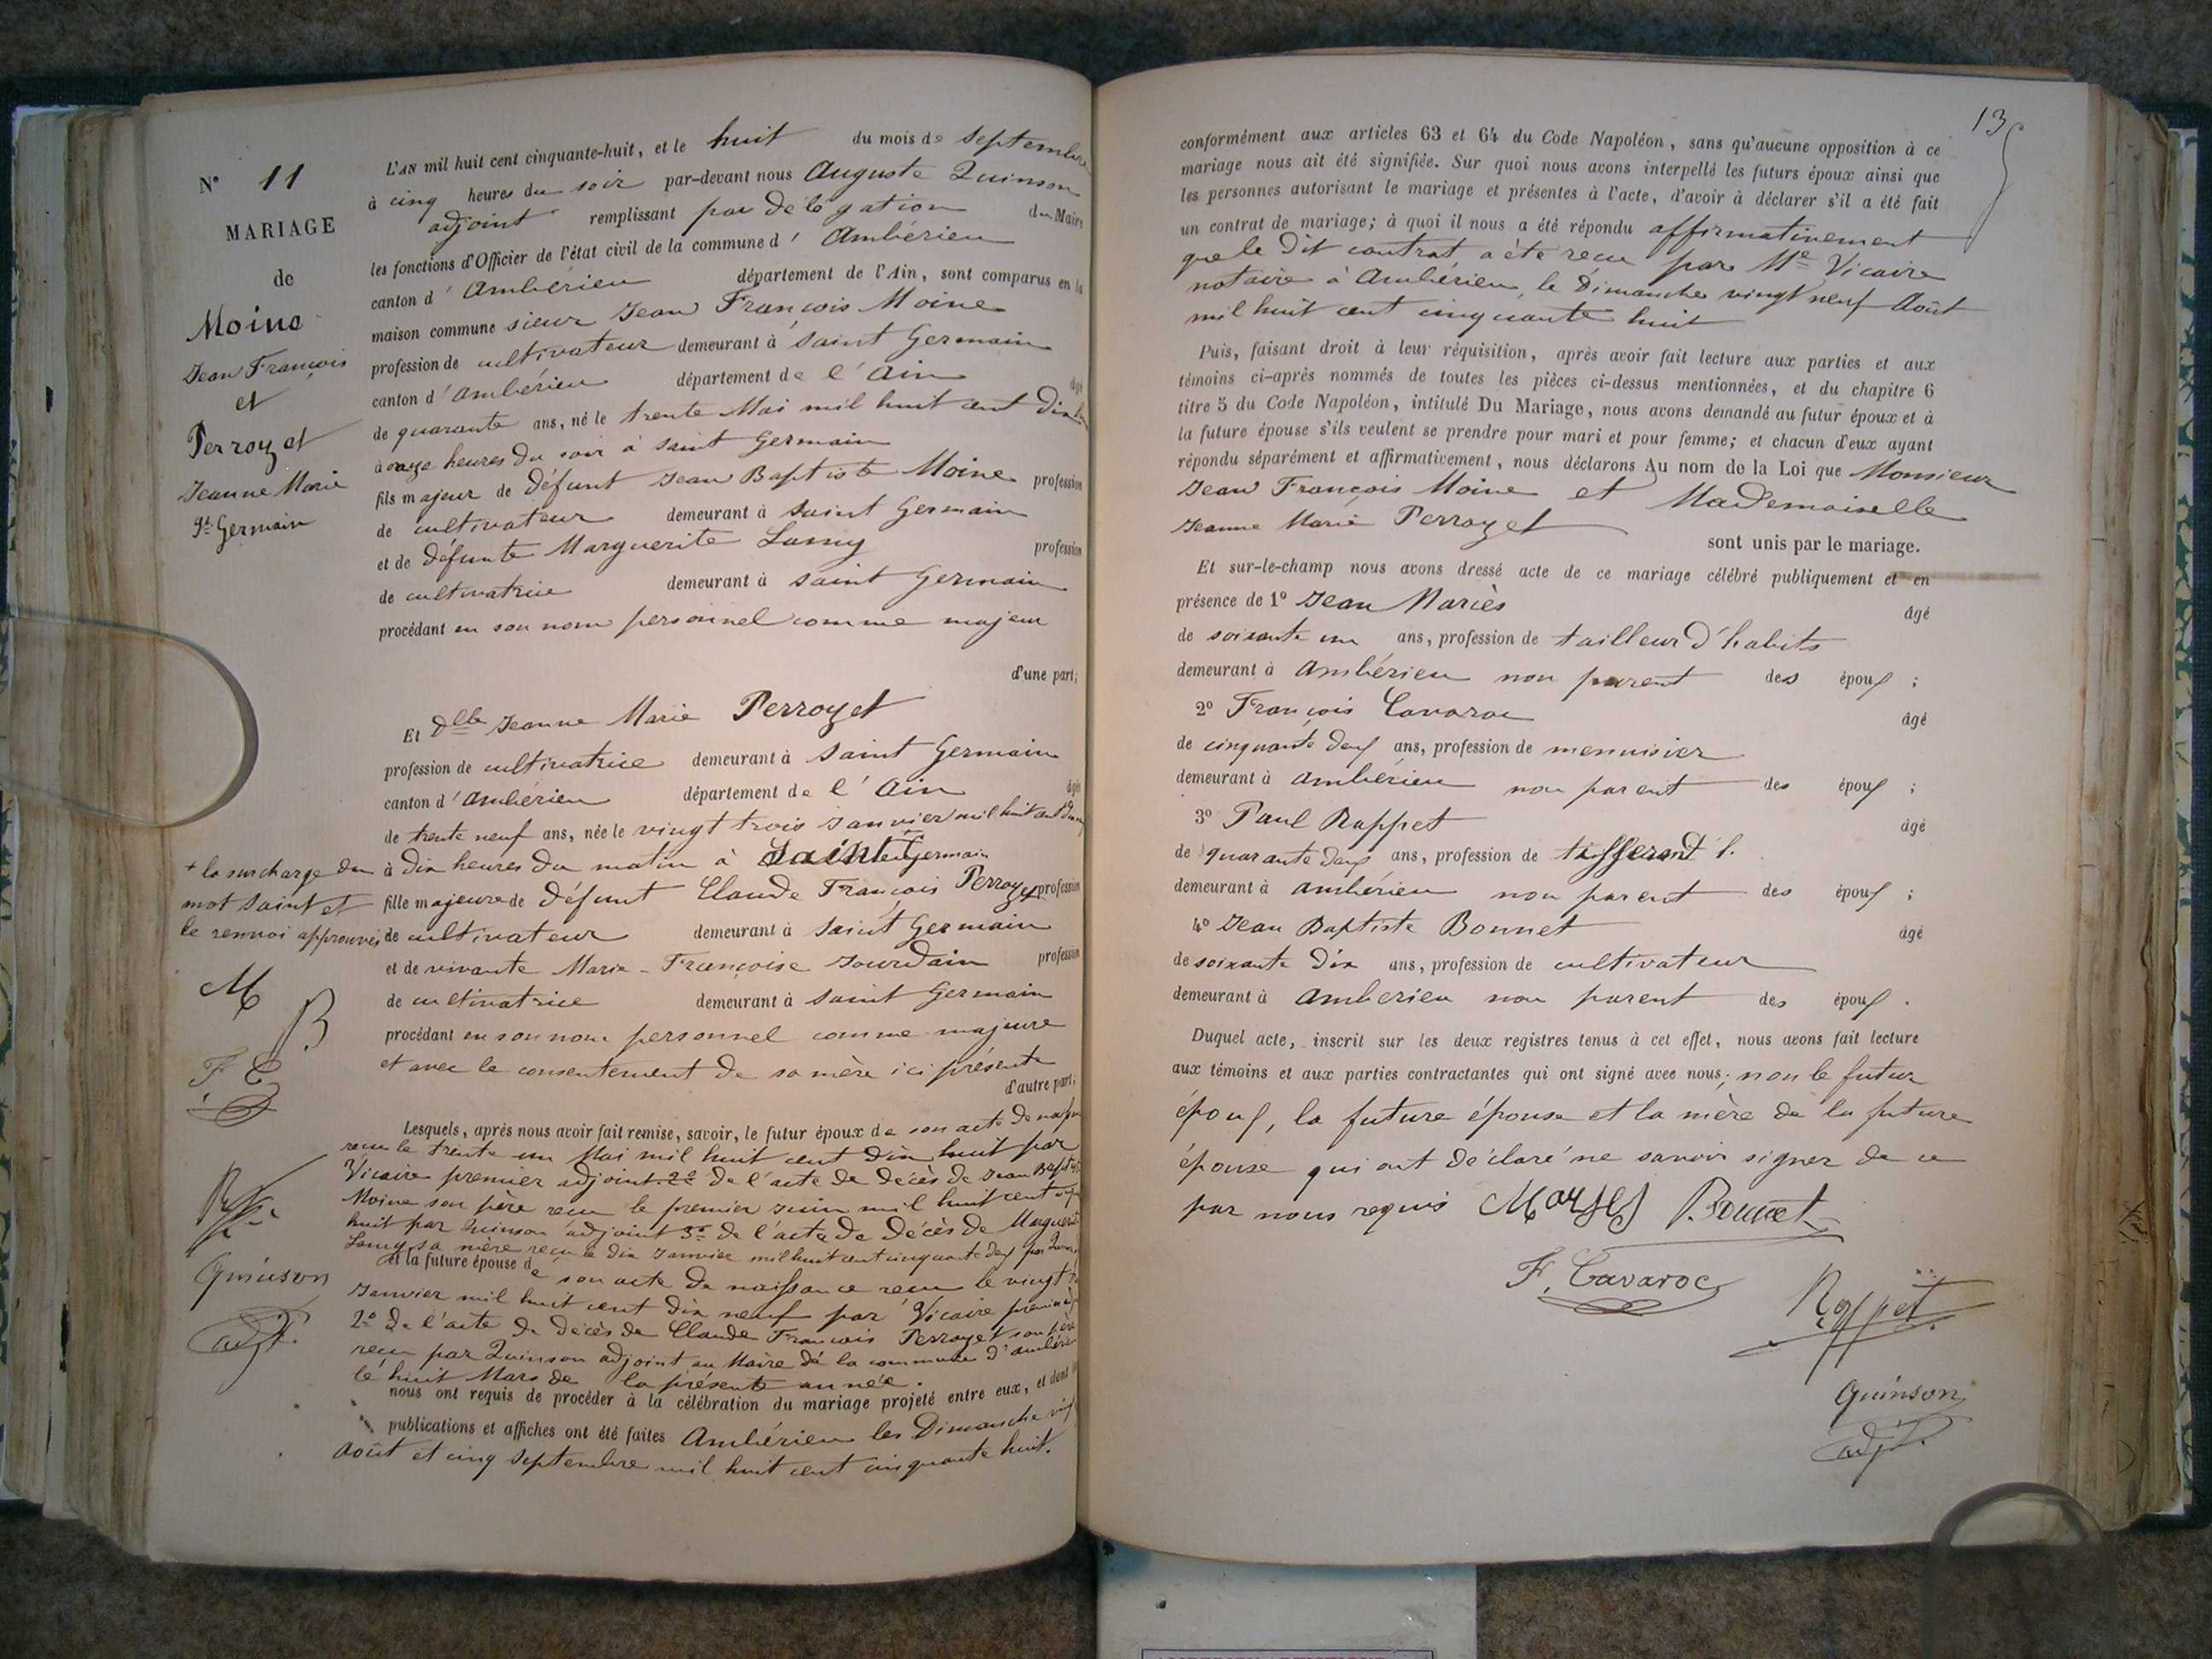 N° 11
MARIAGE
de
Moine
Jean François
et
Perrozet
Jeanne Marie
St Germain
L'AN mil huit cent cinquante-huit, et le huit du mois de septembre
à cinq heures du soir par-devant nous Auguste Quinson
adjoint remplissant par délégation du Maire
les fonctions d'Officier de l'état civil de la commune d' Ambérieu
canton d' Ambérieu département de l'Ain, sont comparus en la
maison commune sieur Jean François Moine
profession de cultivateur demeurant à Saint Germain
canton d' Ambérieu département de l' Ain âgé
de quarante ans, né le trente Mai mil huit cent dix huit
à onze heures du soir à Saint Germain
fils majeur de défunt Jean Baptiste Moine profession
de cultivateur demeurant à Saint Germain
et de défunte Marguerite Lamy profession
de cultivatrice demeurant à Saint Germain
procédant en son nom personnel comme majeur
d'une part;
Et Dlle Jeanne Marie Perrozet
profession de cultivatrice demeurant à Saint Germain
canton d' Ambérieu département de l' Ain âgée
de trente neuf ans, née le vingt trois Janvier mil huit cent dix neuf
+ la surcharge du
mot Saint et
le renvoi approuvés
à dix heures du matin à Saint Germain
fille majeure de défunt Claude François Perrozet profession
de cultivateur demeurant à Saint Germain
et de vivante Marie-Françoise Jourdain profession
de cultivatrice demeurant à Saint Germain
procédant en son nom personnel comme majeure
et avec le consentement de sa mère ici présente
d'autre part;
M
B
F C
Quinson
adjt.
Lesquels, après nous avoir fait remise, savoir, le futur époux de son acte de naissance
reçu le trente un Mai mil huit cent dix huit par
Vicaire premier adjoint. 2° de l'acte de décès de Jean Baptiste
Moine son père reçu le premier Juin mil huit cent
huit par Quinson adjoint 3° de l'acte de décès de Marguerite
Lamy sa mère reçu le dix Janvier mil huit cent cinquante deux par Quinson
et la future épouse de son acte de naissance reçu le vingt
Janvier mil huit cent dix neuf par Vicaire premier adjt
2° de l'acte de décès de Claude François Perrozet son père
reçu par Quinson adjoint au Maire de la commune d'Ambérieu
le huit Mars de la présente année.
nous ont requis de procéder à la célébration du mariage projeté entre eux, et dont les
publications et affiches ont été faites Ambérieu les Dimanche
Août et cinq Septembre mil huit cent cinquante huit.
13
conformément aux articles 63 et 64 du Code Napoléon, sans qu'aucune opposition à ce
mariage nous ait été signifiée. Sur quoi nous avons interpellé les futurs époux ainsi que
les personnes autorisant le mariage et présentes à l'acte, d'avoir à déclarer s'il a été fait
un contrat de mariage; à quoi il nous a été répondu affirmativement
que le dit contrat a été reçu par Me Vicaire
notaire à Ambérieu, le Dimanche vingt neuf Août
mil huit cent cinquante huit
Puis, faisant droit à leur réquisition, après avoir fait lecture aux parties et aux
témoins ci-après nommés de toutes les pièces ci-dessus mentionnées, et du chapitre 6
titre 5 du Code Napoléon, intitulé Du Mariage, nous avons demandé au futur époux et à
la future épouse s'ils veulent se prendre pour mari et pour femme; et chacun d'eux ayant
répondu séparément et affirmativement, nous déclarons Au nom de la Loi que Monsieur
Jean François Moine et Mademoiselle
Jeanne Marie Perrozet
sont unis par le mariage.
Et sur-le-champ nous avons dressé acte de ce mariage célébré publiquement et en
présence de 1° Jean Mariès âgé
de soixante un ans, profession de tailleur d'habits
demeurant à Ambérieu non parent des époux ;
2° François Cavaroc âgé
de cinquante deux ans, profession de menuisier
demeurant à Ambérieu non parent des époux ;
3° Paul Rappet âgé
de quarante deux ans, profession de tisserand
demeurant à Ambérieu non parent des époux ;
4° Jean Baptiste Bonnet âgé
de soixante dix ans, profession de cultivateur
demeurant à Amberieu non parent des époux .
Duquel acte, inscrit sur les deux registres tenus à cet effet, nous avons fait lecture
aux témoins et aux parties contractantes qui ont signé avec nous; non le futur
époux, la future épouse et la mère de la future
épouse qui ont déclaré ne savoir signer de ce
par nous requis Maryes Bonnet
F. Cavaroc
Rappet
Quinson
adjt.